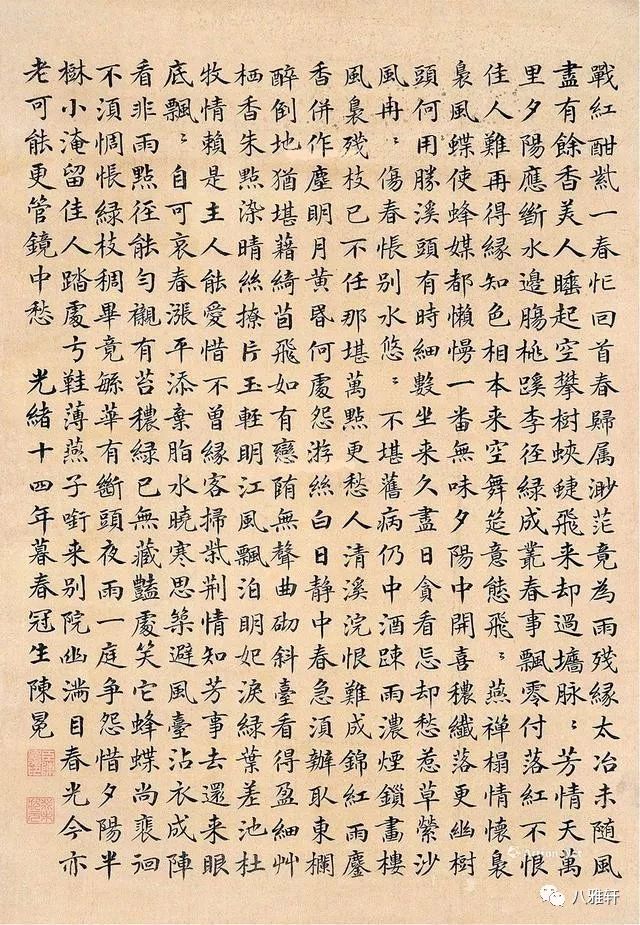 戰紅酣紫一春忙回首春歸属渺茫竟為雨殘緣太冶未随風
盡有餘香美人睡起空攀樹蛺蜨飛来却過墻脉〻芳情天萬
里夕陽應斷水邊膓桃蹊李徑綠成叢春事飄零付落紅不恨
佳人難再得緣知色相本来空舞筵意態飛〻燕禪榻情懷裊
裊風蝶使蜂媒都懶慢一番無味夕陽中開喜穠纖落更幽樹
頭何用勝溪頭有時細數坐来久盡日貪看忘却愁惹草縈沙
風冉〻傷春悵别水悠〻不堪舊病仍中酒踈雨濃煙鎖畫樓
風裊殘枝已不任那堪萬點更愁人清溪浣恨難成錦紅雨鏖
香併作塵明月黄昏何處怨游絲白日静中春急湏辦取東欄
醉倒地猶堪藉綺茵飛如有戀陏無聲曲砌斜臺看得盈細艸
栖香朱點染晴絲撩片玉輕明江風飄泊明妃淚綠葉差池杜
牧情賴是主人能愛惜不曾緣客掃柴荆情知芳事去還来眼
底飄〻自可哀春漲平添棄脂水曉寒思築避風臺沾衣成陣
看非雨點徑能勻襯有苔穠綠已無藏豔處笑它蜂蝶尚裵徊
不湏惆悵綠枝稠畢竟緐華有斷頭夜雨一庭争怨惜夕陽半
樹小淹留佳人踏處弓鞋薄燕子銜来别院幽滿目春光今亦
老可能更管鏡中愁 光緒十四年暮春冠生陳冕
八雅轩